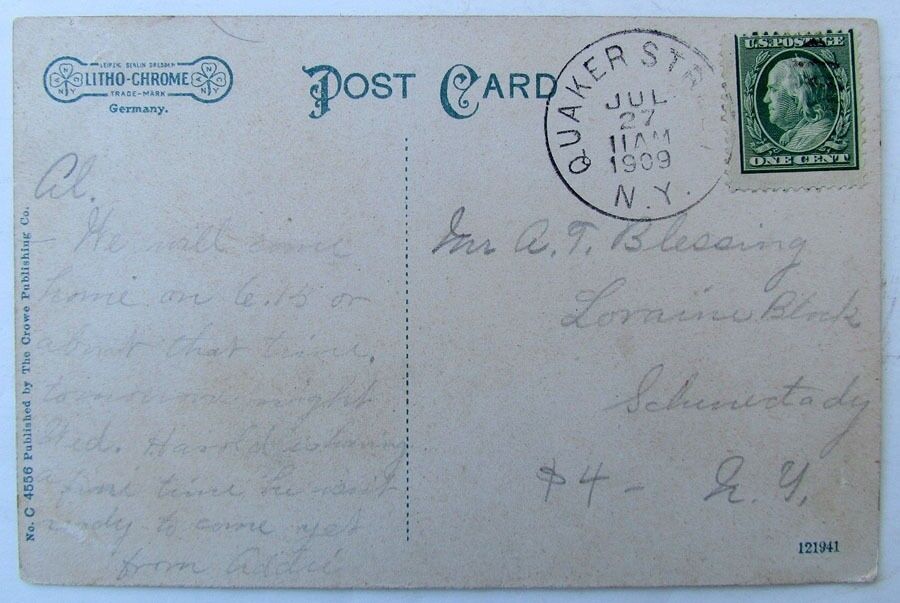 LEIPZIG BERLIN DRESDEN
LITHO-CHROME
TRADE-MARK
Germany.
N Y
N Y
POST CARD
QUAKER STR
JUL
27
11AM
1909
N.Y.
U.S. POSTAGE
ONE CENT
No. C 4556 Published by The Crowe Publishing Co.
Al.
- We will come
home on 6.15 or
about that time.
tomorrow night
Wed. Harold is having
a fine time he isn't
ready to come yet
from Addie
Mr A. T. Blessing
Lorraine Block
Schenectady
$4 - N. Y.
121941